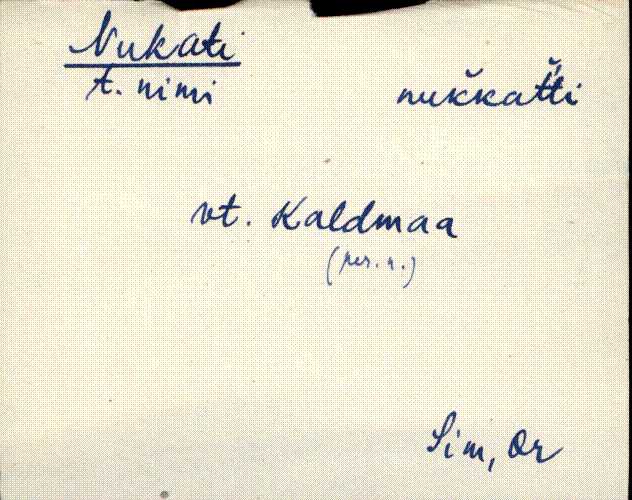 Nukati
t. nimi nuk̆kat̆ti
vt. Kaldmaa
(per. n.)
Sim, Or